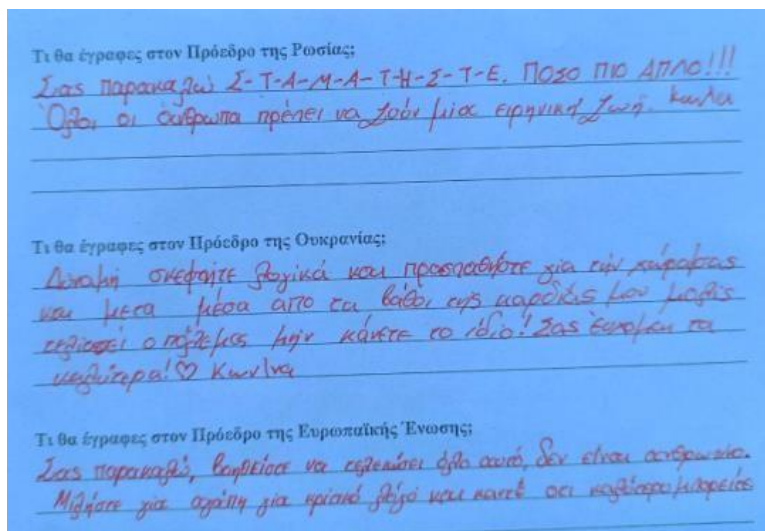 Τι θα έγραφες στον Πρόεδρο της Ρωσίας;
Σας παρακαλώ Σ-Τ-Α-Μ-Α-Τ-Η-Σ-Τ-Ε. ΠΟΣΟ ΠΙΟ ΑΠΛΟ!!!
Όλοι οι άνθρωποι πρέπει να ζούν μία ειρηνική ζωή.
Τι θα έγραφες στον Πρόεδρο της Ουκρανίας;
Δύναμη σκεφτήτε λογικά και προσπαθήστε για την χώρα σας
και μεσα μέσα απο τα βάθοι της καρδιάς μου μολις
τελιοσεί ο πόλεμος μην κάνετε το ίδιο! Σας έυχομαι τα
καλύτερα!♡ Κων/να
Τι θα έγραφες στον Πρόεδρο της Ευρωπαϊκής Ένωσης;
Σας παρακαλώ, βοηθείστε να τελειώσει όλο αυτό, δεν είναι ανθρωπινο.
Μιλήστε για αγάπη για και καντέ οτι καλύτερο μπορείτε